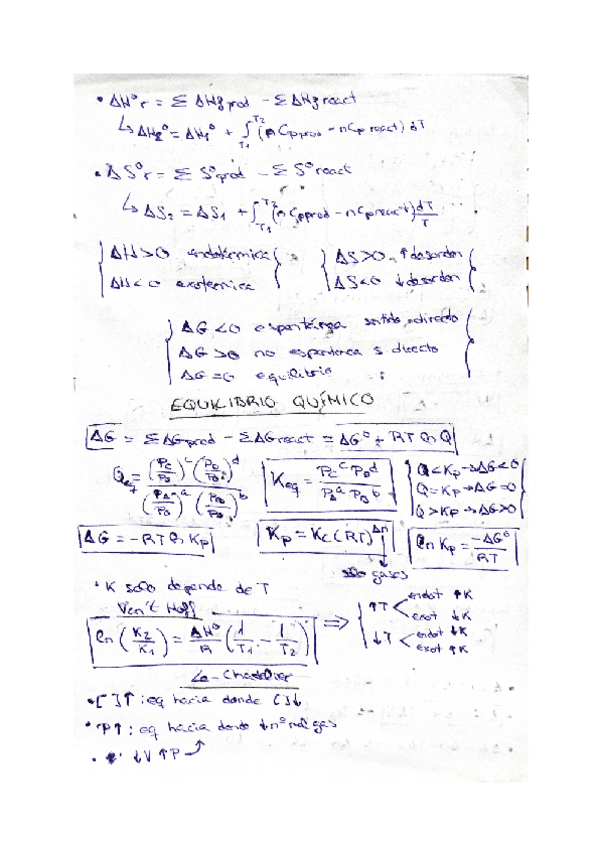 • ΔH°r = Σ ΔHf prod - Σ ΔHf react
↳ ΔH2° = ΔH1° + ∫T1^T2 (n Cp prod - n Cp react) dT
• ΔS°r = Σ S°prod - Σ S°react
↳ ΔS2 = ΔS1 + ∫T1^T2 (n Cp prod - n Cp react) dT/T
ΔH>0 endotérmica ΔS>0 ↑desorden
ΔH<0 exotermica ΔS<0 ↓desorden
ΔG<0 espontánea sentido directo
ΔG>0 no espontanea s directo
ΔG=0 equilibrio
EQUILIBRIO QUÍMICO
ΔG = ΣΔG prod - ΣΔG react = ΔG° + RT ln Q
Qeq = (Pc/P°)^c (PD/P°)^d / (PA/P°)^a (PB/P°)^b Keq = Pc^c PD^d / PA^a PB^b Q<Kp→ΔG<0
Q=Kp→ΔG=0
Q>Kp→ΔG>0
ΔG = -RT ln Kp Kp = Kc (RT)^Δn ln Kp = -ΔG°/RT
solo gases
• K solo depende de T
Van't Hoff
ln (K2/K1) = ΔH°/R (1/T1 - 1/T2) ⇒ ↑T < endot ↑K
exot ↓K
↓T < endot ↓K
exot ↑K
Le-Chatelier
• [ ]↑: eq hacia donde [ ]↓
• P↑: eq hacia donde ↓nº mol gas
• ↓V ↑P